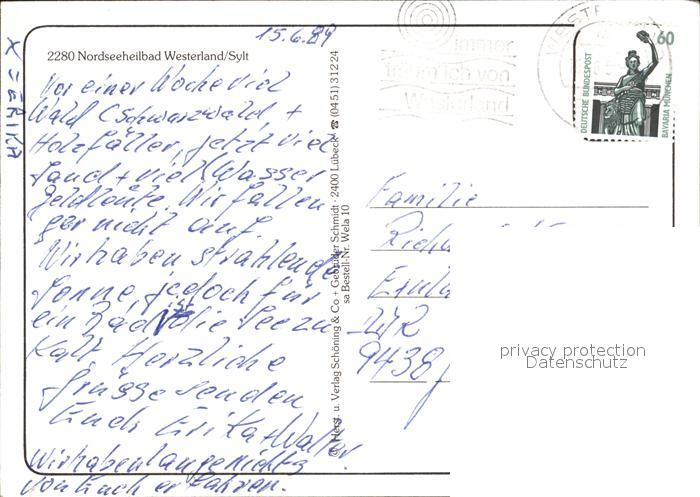 15.6.89
2280 Nordseeheilbad Westerland/Sylt
X = ERIKA
Vor einer Woche viel
Wald (Schwarzwald, +
Holzfäller, jetzt viel
Sand + viel Wasser
Geldleute. Wir fallen
gar nicht auf.
Wir haben strahlende
Sonne, jedoch für
ein Bad ist die See zu
kalt. Herzliche
Grüsse senden
Euch Erika + Walter.
Wir haben lange nichts
von Euch erfahren.
Herst. u. Verlag Schöning & Co + Gebrüder Schmidt · 2400 Lübeck ☎ (0451) 31 22 24
sa Bestell-Nr. Wela 10
immer
träum ich von
Westerland
WESTER
60
DEUTSCHE BUNDESPOST
BAVARIA MÜNCHEN
Familie
9438
privacy protection
Datenschutz